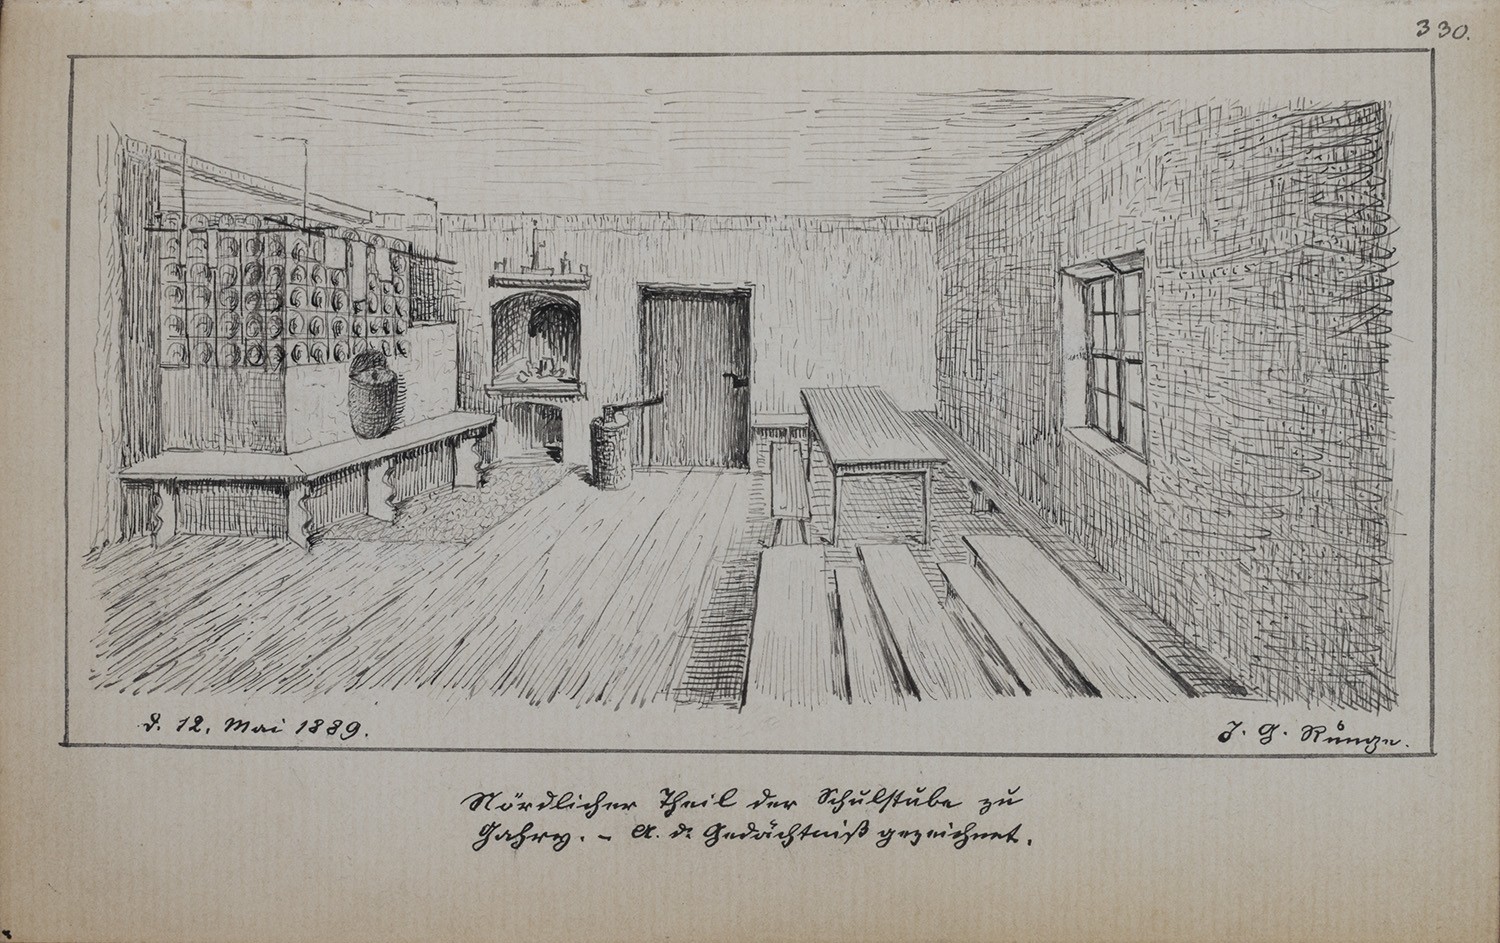 330.
d. 12. Mai 1889.
J. G. Runge.
Nördlicher Theil der Schulstube zu
Gahry. – A. d. Gedächtniß gezeichnet.